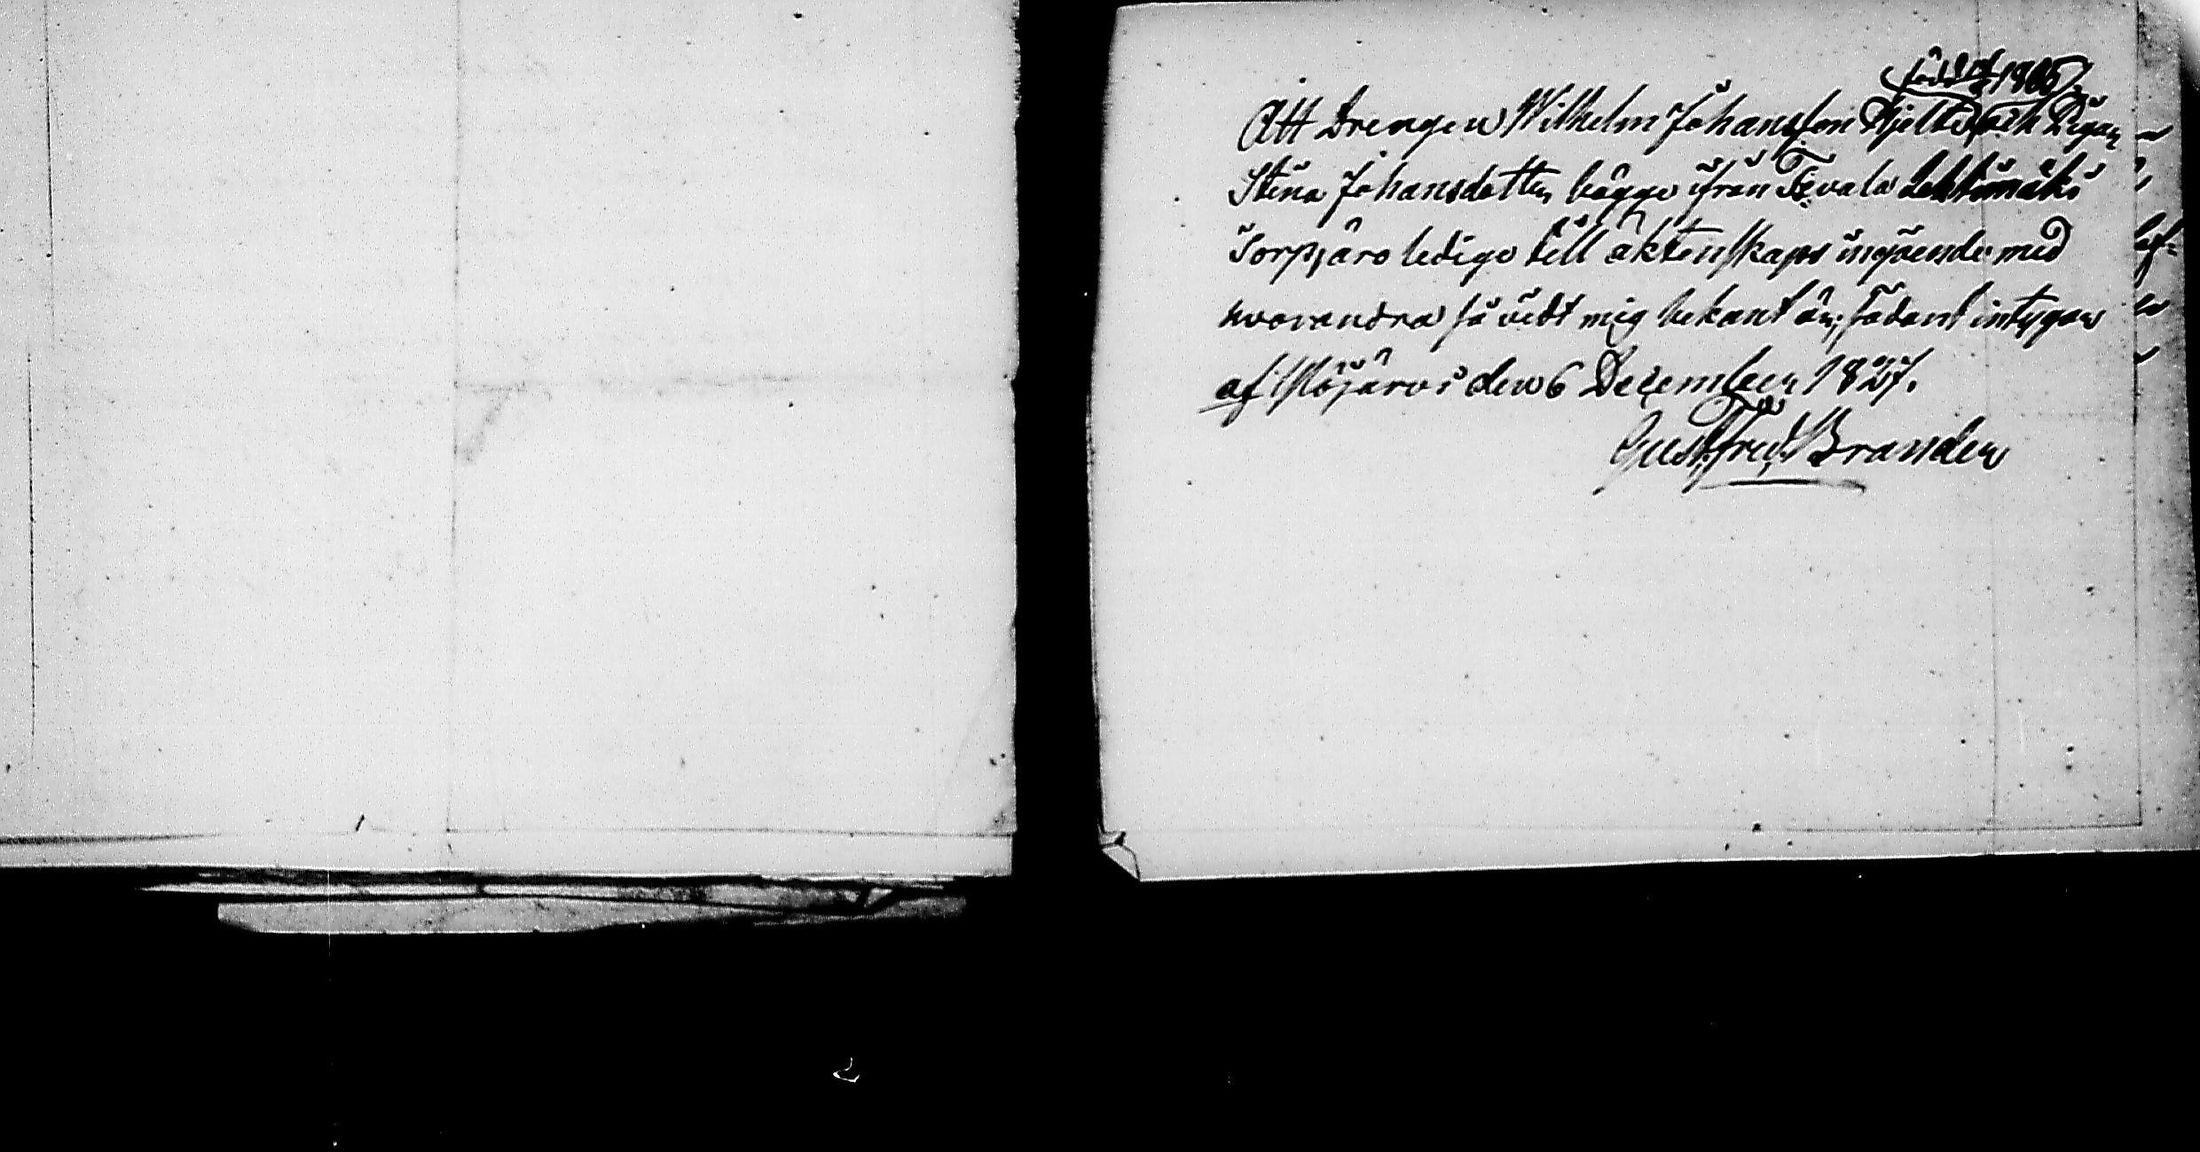 född 1805
Att Drengen Wilhelm Johansson Hjelte, och Pigan
Stina Johansdotter bägge ifrån Tevala
Torp, äro ledige till äktenskaps ingående med
hvarandra så vidt mig bekant är; sådant intygar
af Ylöjärvi den 6 December 1827.
Gust: Fred: Brander